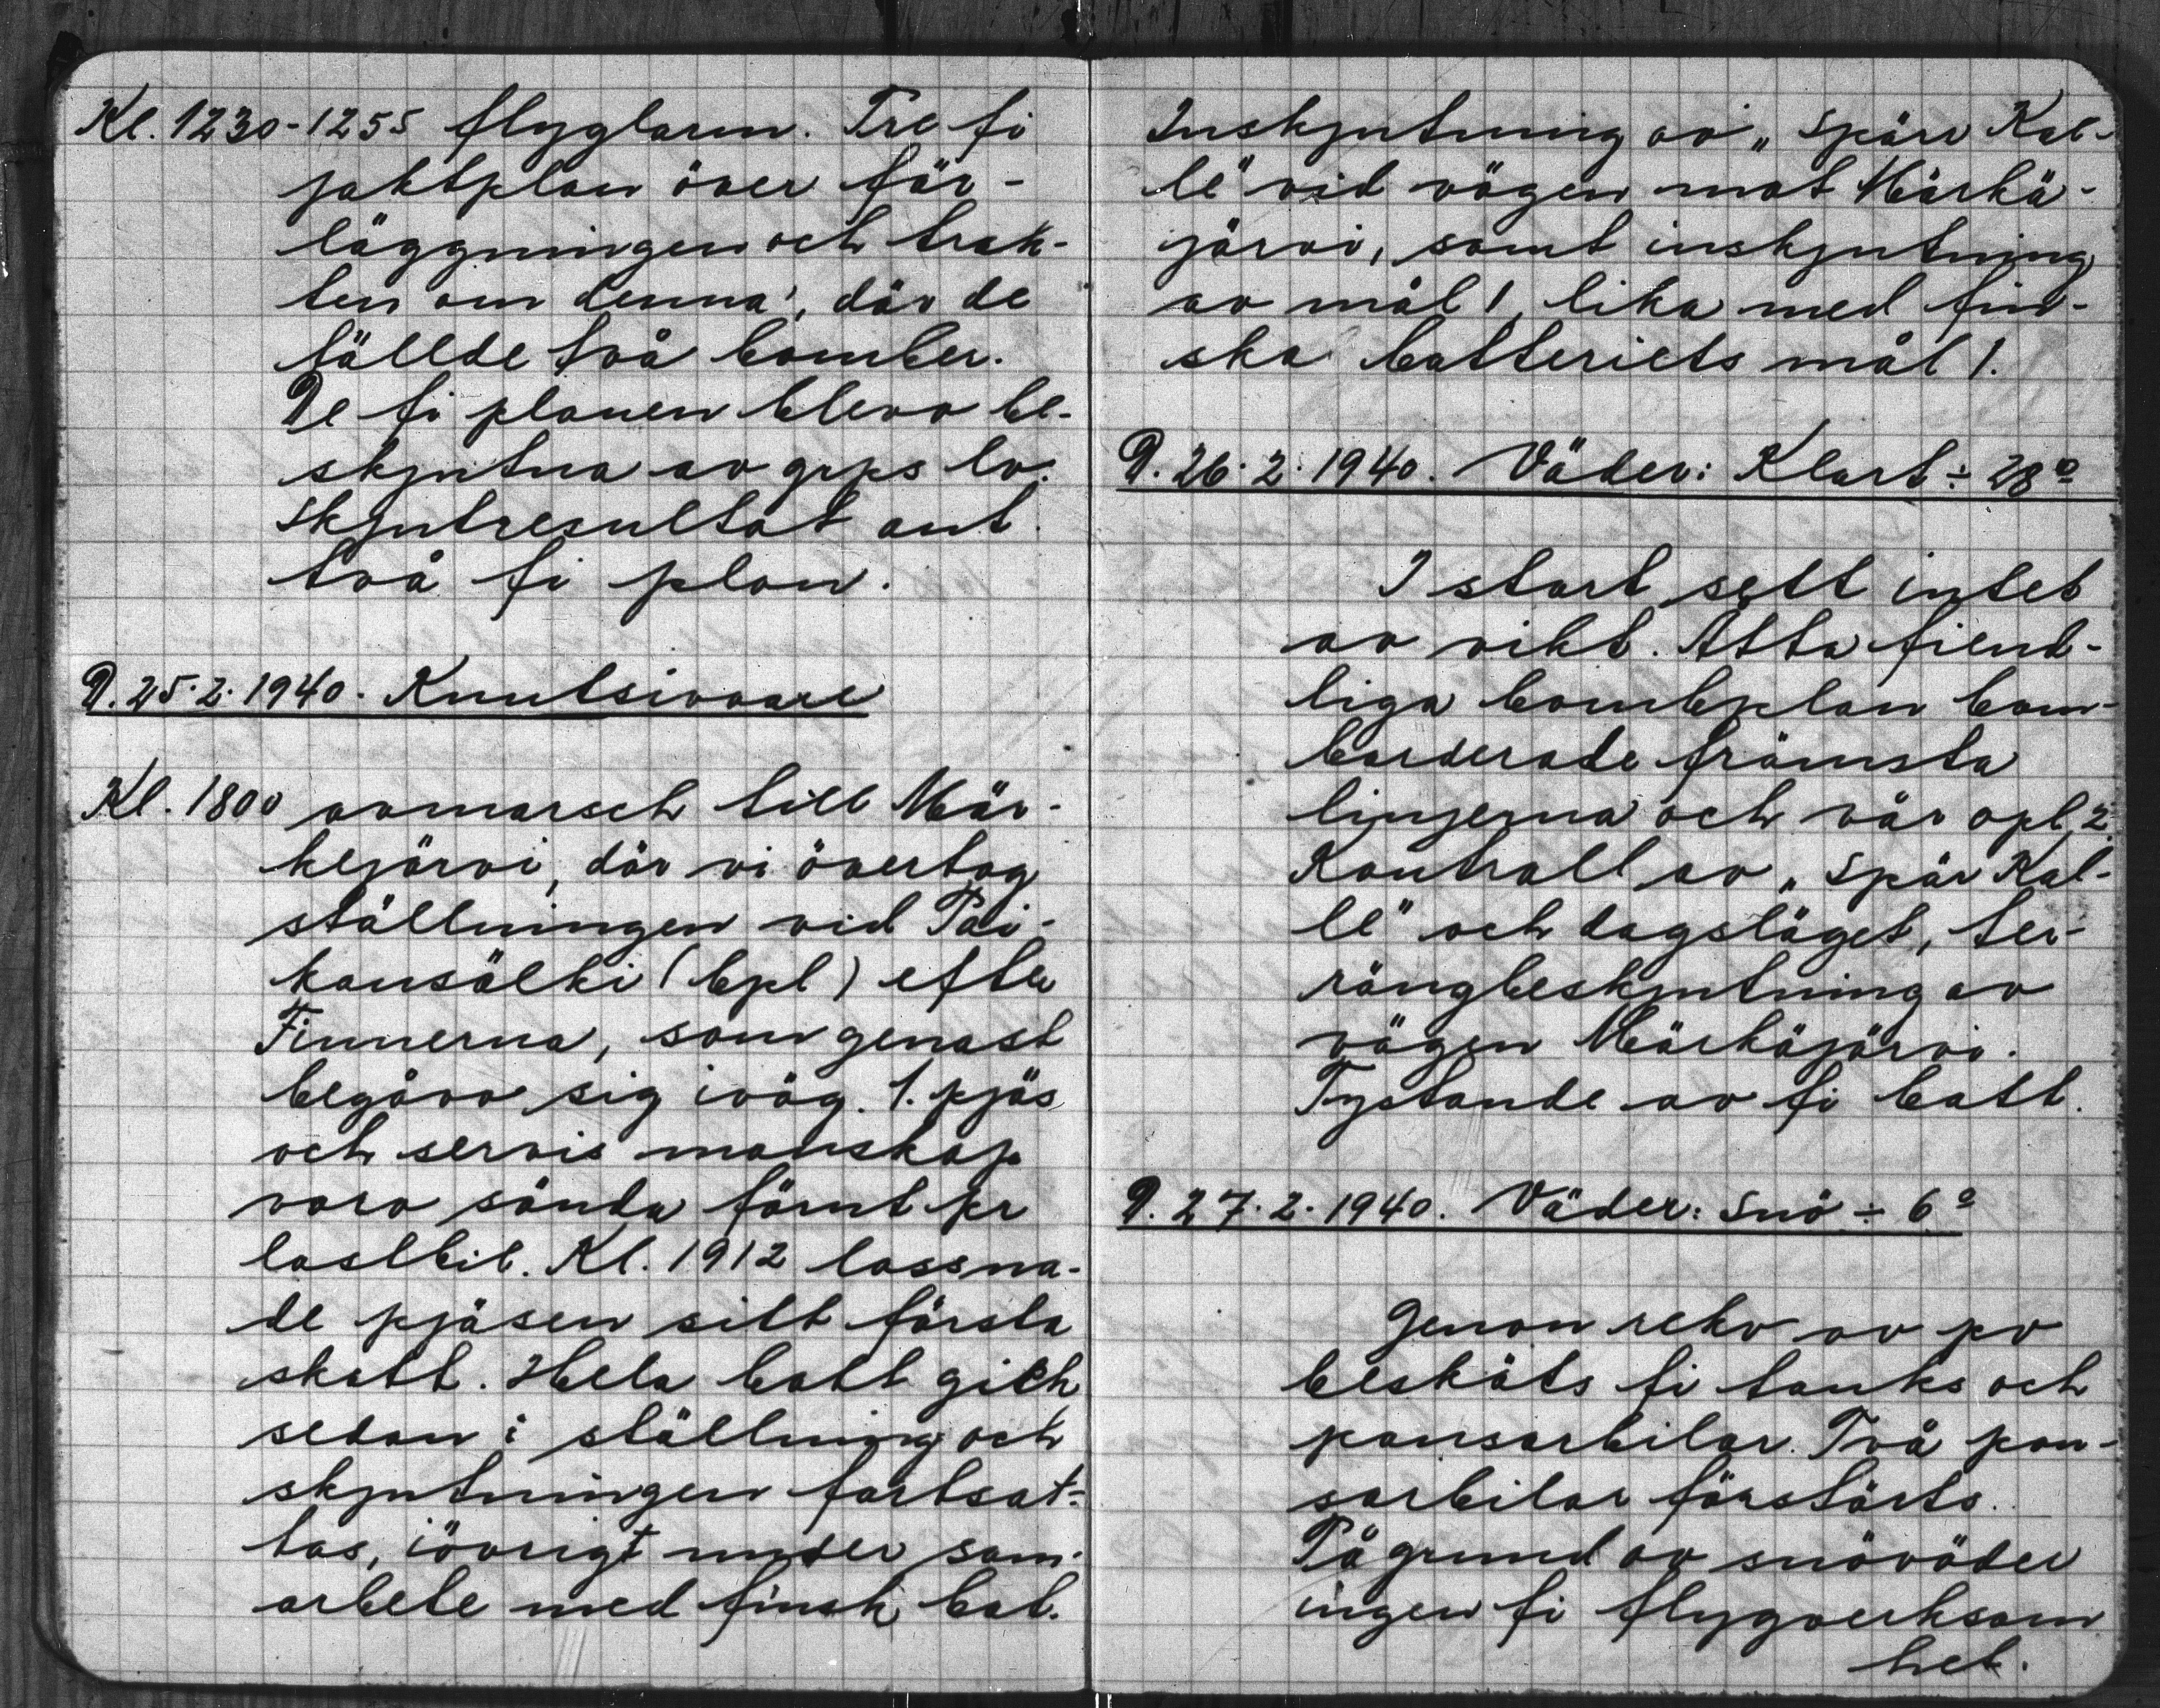 Kl. 1230-1255 flyglarm. Tre fi
jaktplan över för-
läggningen och trak-
ten om denna, där de
fällde två bomber.
De fi planen blevo be-
skjutna av grps lv.
Skjutresultat ant.
två fi plan.
D. 25.2.1940. Knutsivaare
Kl. 1800 avmarsch till Mär-
kejärvi, där vi övertog
ställningen vid Pai-
kanselki (bpl) efter
Finnerna, som genast
begåvo sig iväg. 1. pjäs
och servis manskap
voro sända förut pr
lastbil. Kl. 1912 lossna-
de pjäsen sitt första
skott. Hela batt gick
sedan i ställning och
skjutningen fortsat-
tas, iövrigt under sam-
arbete med finsk bat.
Inskjutning av „Spärr Kal-
le" vid vägen mot Märkä-
järvi, samt inskjutning
av mål 1, lika med fin-
ska batteriets mål 1.
D. 26.2.1940. Väder: Klart ÷ 28°
I stort sett intet
av vikt. Åtta fiend-
liga bombplan bom-
barderade främsta
linjerna och vår opl, 2.
Kontroll av „Spär Kal-
le" och dagsläget, ter-
rängbeskjutning av
vägen Märkäjärvi.
Tystande av fi batt.
D. 27.2.1940. Väder: Snö ÷ 6°
Genom rekv av pv
besköts fi tanks och
pansarbilar. Två pan-
sarbilar förstörts.
På grund av snöväder
ingen fi flygverksam
het.